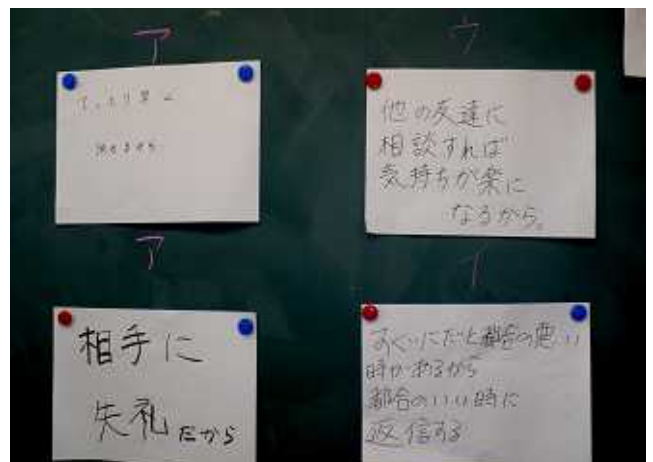 ア
てっとり早く
決まるから
ウ
他の友達に
相談すれば
気持ちが楽に
なるから。
ア
相手に
失礼だから
イ
すぐにだと都合の悪い
時があるから
都合のいい時に
返信する